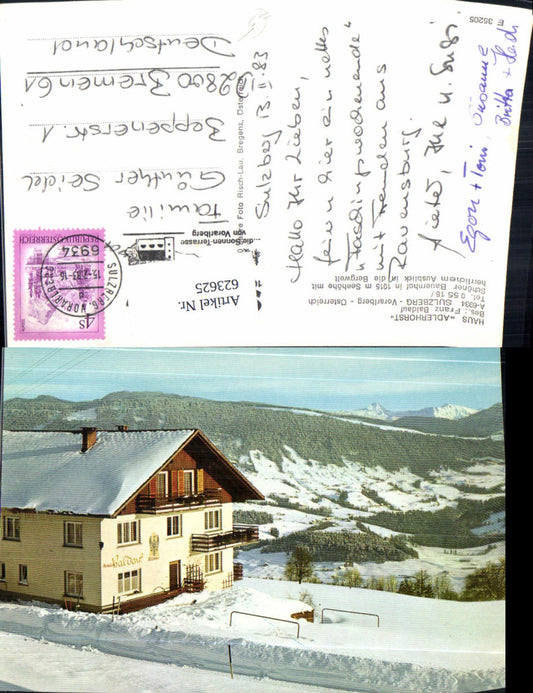 HAUS »ADLERHORST«
Bes.: Franz Baldauf
A-6934 SULZBERG - Vorarlberg - Österreich
Tel. 0 55 16 /
Schöner Bauernhof in 1015 m Seehöhe mit
herrlichem Ausblick in die Bergwelt
E 35205
Sulzberg 13.II.83
Hallo Ihr Lieben,
feiern hier ein nettes
"Faschingswochenende"
mit Freunden aus
Ravensburg.
Egon + Toni, Susanne
Britta + Heidi
Foto Risch-Lau, Bregenz, Österreich
Artikel Nr.
623625
die Sonnen-Terrasse
von Vorarlberg
6934 SULZBERG, VORARLBERG
REPUBLIK ÖSTERREICH
4S
Familie
Günther Seidel
Beppenerstr. 1
2800 Bremen 61
Deutschland
Baldauf